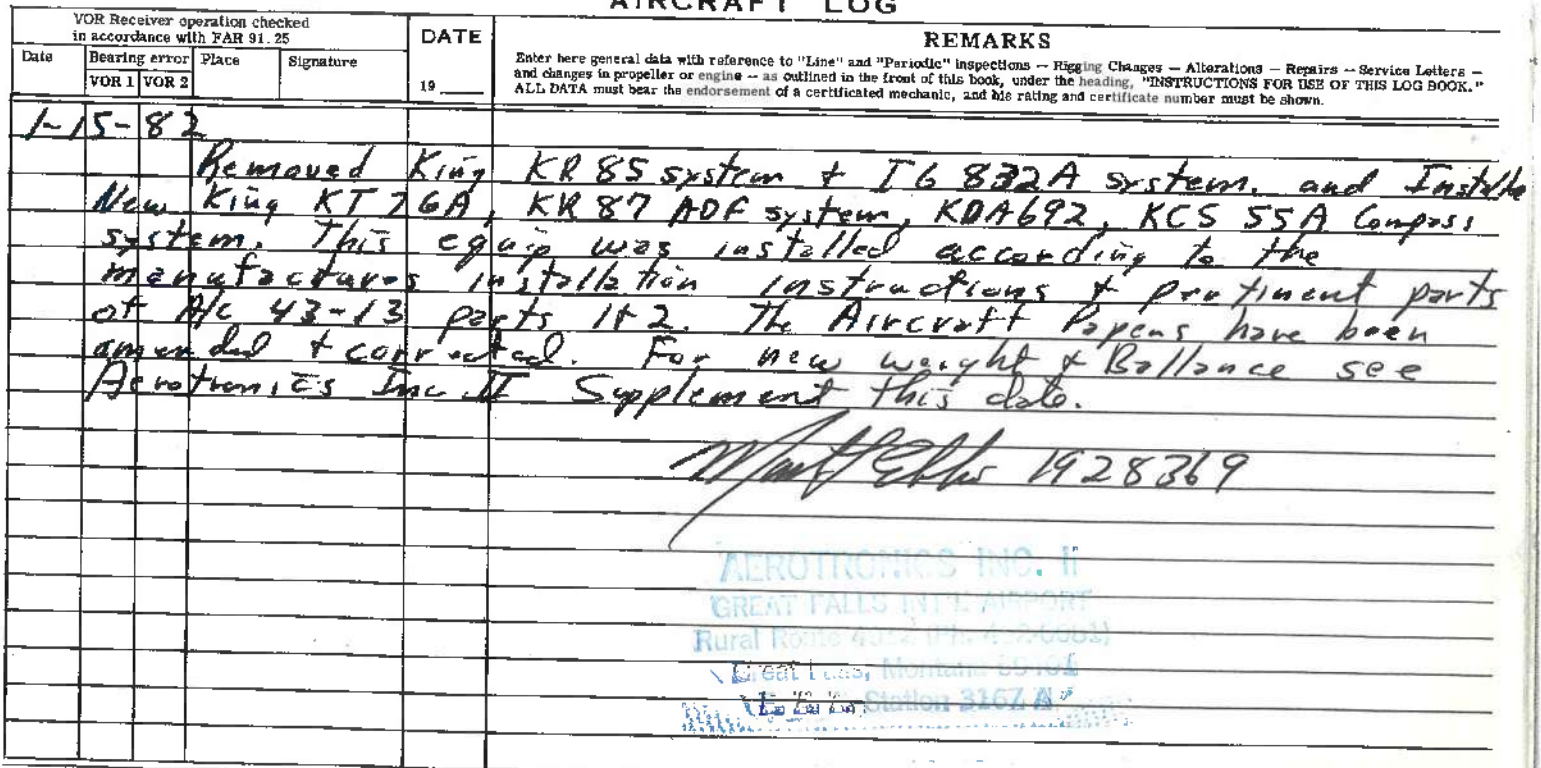 AIRCRAFT LOG
VOR Receiver operation checked
in accordance with FAR 91.25
Date
Bearing error
VOR 1 VOR 2
Place
Signature
DATE
19
REMARKS
Enter here general data with reference to "Line" and "Periodic" inspections -- Rigging Changes -- Alterations -- Repairs -- Service Letters --
and changes in propeller or engine -- as outlined in the front of this book, under the heading, "INSTRUCTIONS FOR USE OF THIS LOG BOOK."
ALL DATA must bear the endorsement of a certificated mechanic, and his rating and certificate number must be shown.
1-15-82
Removed King KR 85 system & IG 832A system. and Installe
New King KT 76A, KR 87 ADF system, KDA692, KCS 55A Compass
system. This equip was installed according to the
manufactures installation instructions & pertinent parts
of A/C 43-13 parts 1&2. The Aircraft Papers have been
amended & corrected. For new weight & Ballance see
Aerotronics Inc. II Supplement this date.
1928369
AEROTRONICS INC. II
GREAT FALLS INT'L AIRPORT
Rural Route
Great Falls, Montana
Station